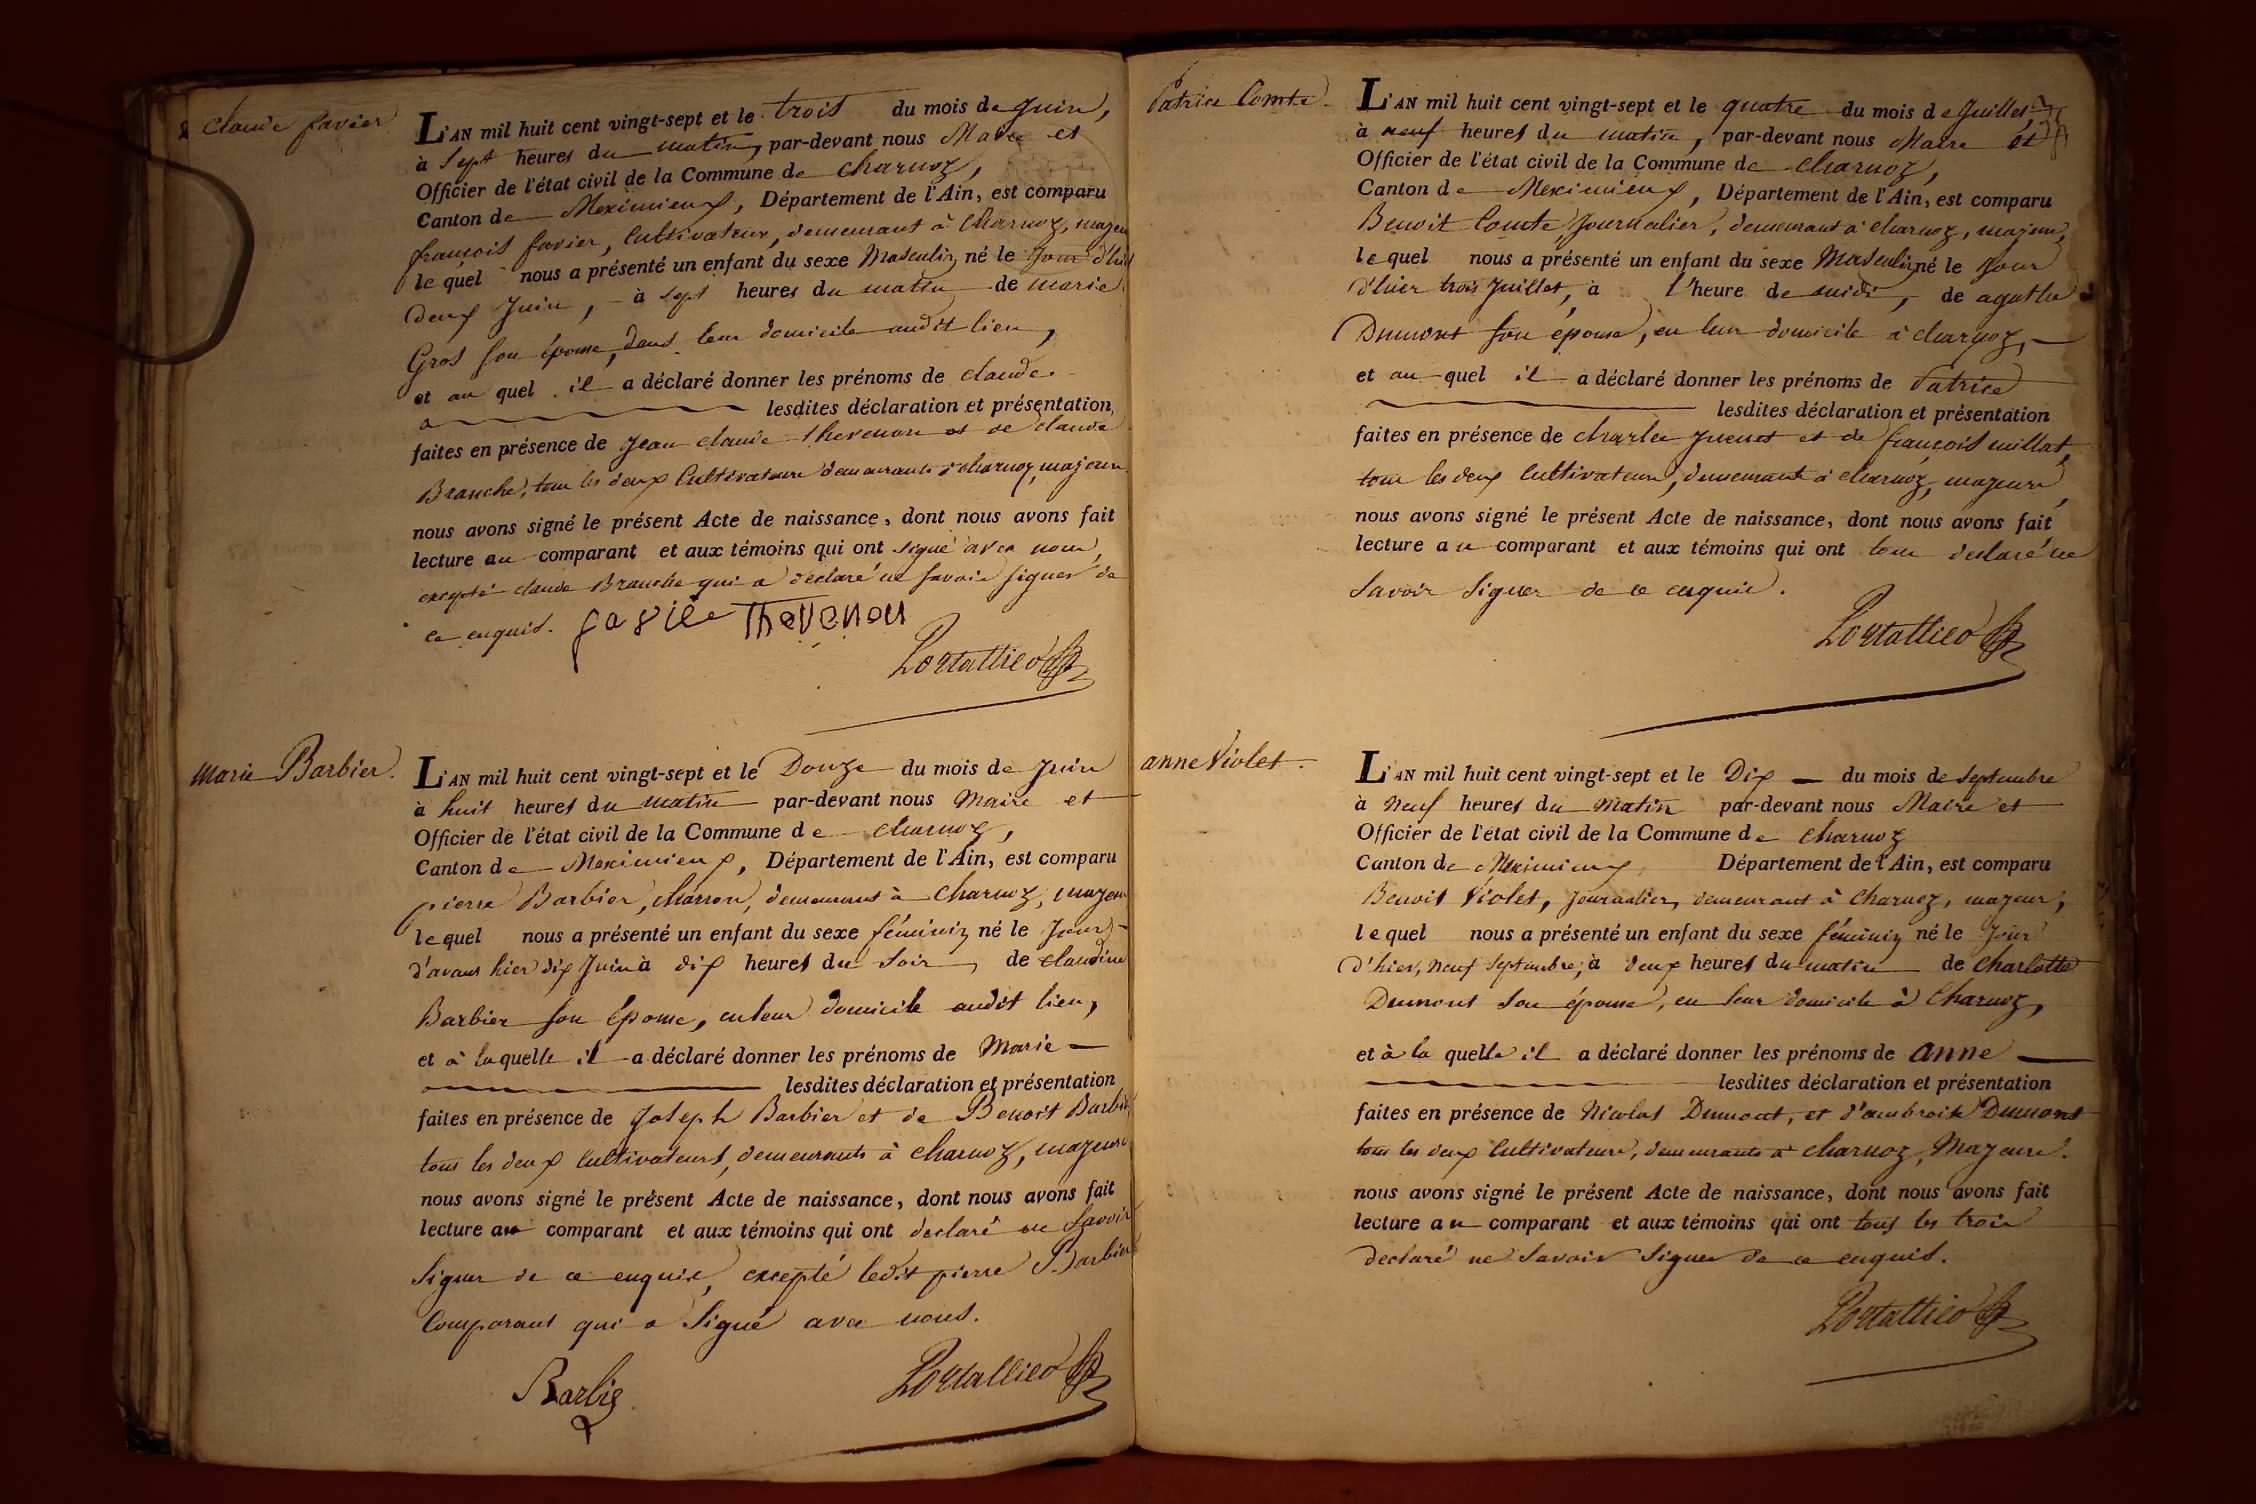 Claude favier
L'AN mil huit cent vingt-sept et le trois du mois de Juin,
à Sept heures du matin, par-devant nous Maire et
Officier de l'état civil de la Commune de Charnoz,
Canton de Meximieux, Département de l'Ain, est comparu
françois favier, Cultivateur, demeurant à Charnoz, majeur
le quel nous a présenté un enfant du sexe Masculin né le Jour d'hier
deux Juin, à sept heures du matin de marie
Gros son épouse, dans leur domicile audit lieu,
et au quel il a déclaré donner les prénoms de claude.
lesdites déclaration et présentation,
faites en présence de Jean claude thevenon et de claude
Branche, tous les deux Cultivateurs demeurants à charnoz, majeurs
nous avons signé le présent Acte de naissance, dont nous avons fait
lecture au comparant et aux témoins qui ont signé avec nous,
excepté claude Branche qui a déclaré ne savoir signer de
ce enquis. favier Thevenon
Portallier
Marie Barbier.
L'AN mil huit cent vingt-sept et le Douze du mois de Juin
à huit heures du matin par-devant nous Maire et
Officier de l'état civil de la Commune de charnoz,
Canton de Meximieux, Département de l'Ain, est comparu
pierre Barbier, charron, demeurant à Charnoz, majeur
le quel nous a présenté un enfant du sexe féminin né le Jour
d'avant hier dix Juin à dix heures du soir, de claudine
Barbier son épouse, en leur domicile audit lieu,
et à la quelle il a déclaré donner les prénoms de Marie
lesdites déclaration et présentation
faites en présence de Joseph Barbier et de Benoit Barbier
tous les deux Cultivateurs, demeurants à charnoz, majeurs
nous avons signé le présent Acte de naissance, dont nous avons fait
lecture au comparant et aux témoins qui ont déclaré ne savoir
signer de ce enquis, excepté ledit pierre Barbier
Comparant qui a signé avec nous.
Barbie Portallier
Patrice Comte
L'AN mil huit cent vingt-sept et le quatre du mois de Juillet,
à neuf heures du matin, par-devant nous Maire et
Officier de l'état civil de la Commune de charnoz,
Canton de Meximieux, Département de l'Ain, est comparu
Benoit Comte, Journalier, demeurant à charnoz, majeur,
le quel nous a présenté un enfant du sexe Masculin né le Jour
d'hier trois Juillet, à l'heure de midi, de agathe
Dumont son épouse, en leur domicile à charnoz,
et au quel il a déclaré donner les prénoms de Patrice
lesdites déclaration et présentation
faites en présence de charles Juenet et de françois millat,
tous les deux Cultivateurs, demeurants à charnoz, majeurs,
nous avons signé le présent Acte de naissance, dont nous avons fait
lecture au comparant et aux témoins qui ont tous déclaré ne
savoir signer de ce enquis.
Portallier
anne Violet
L'AN mil huit cent vingt-sept et le Dix du mois de septembre
à Neuf heures du matin par-devant nous Maire et
Officier de l'état civil de la Commune de charnoz
Canton de Meximieux, Département de l'Ain, est comparu
Benoit Violet, journalier, demeurant à Charnoz, majeur,
le quel nous a présenté un enfant du sexe féminin né le Jour
d'hier, neuf septembre, à deux heures du matin de Charlotte
Dumont son épouse, en leur domicile à Charnoz,
et à la quelle il a déclaré donner les prénoms de anne
lesdites déclaration et présentation
faites en présence de Nicolas Dumont, et d'ambroise Dumont
tous les deux Cultivateurs, demeurants à charnoz, Majeurs.
nous avons signé le présent Acte de naissance, dont nous avons fait
lecture au comparant et aux témoins qui ont tous les trois
déclaré ne savoir signer de ce enquis.
Portallier